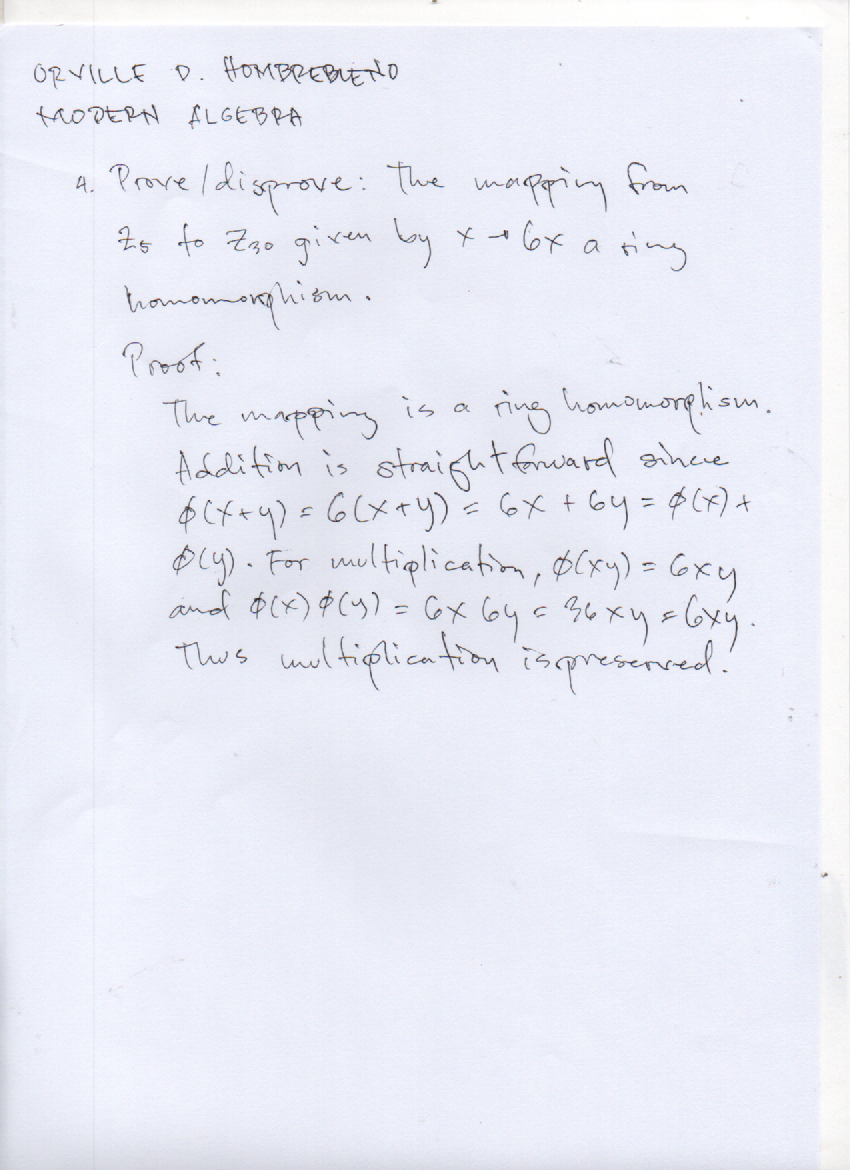 ORVILLE D. HOMBREBUENO
MODERN ALGEBRA
4. Prove/disprove: The mapping from
Z₅ to Z₃₀ given by x → 6x a ring
homomorphism.
Proof:
The mapping is a ring homomorphism.
Addition is straightforward since
ϕ(x+y) = 6(x+y) = 6x + 6y = ϕ(x) +
ϕ(y). For multiplication, ϕ(xy) = 6xy
and ϕ(x)ϕ(y) = 6x6y = 36xy = 6xy.
Thus multiplication is preserved.